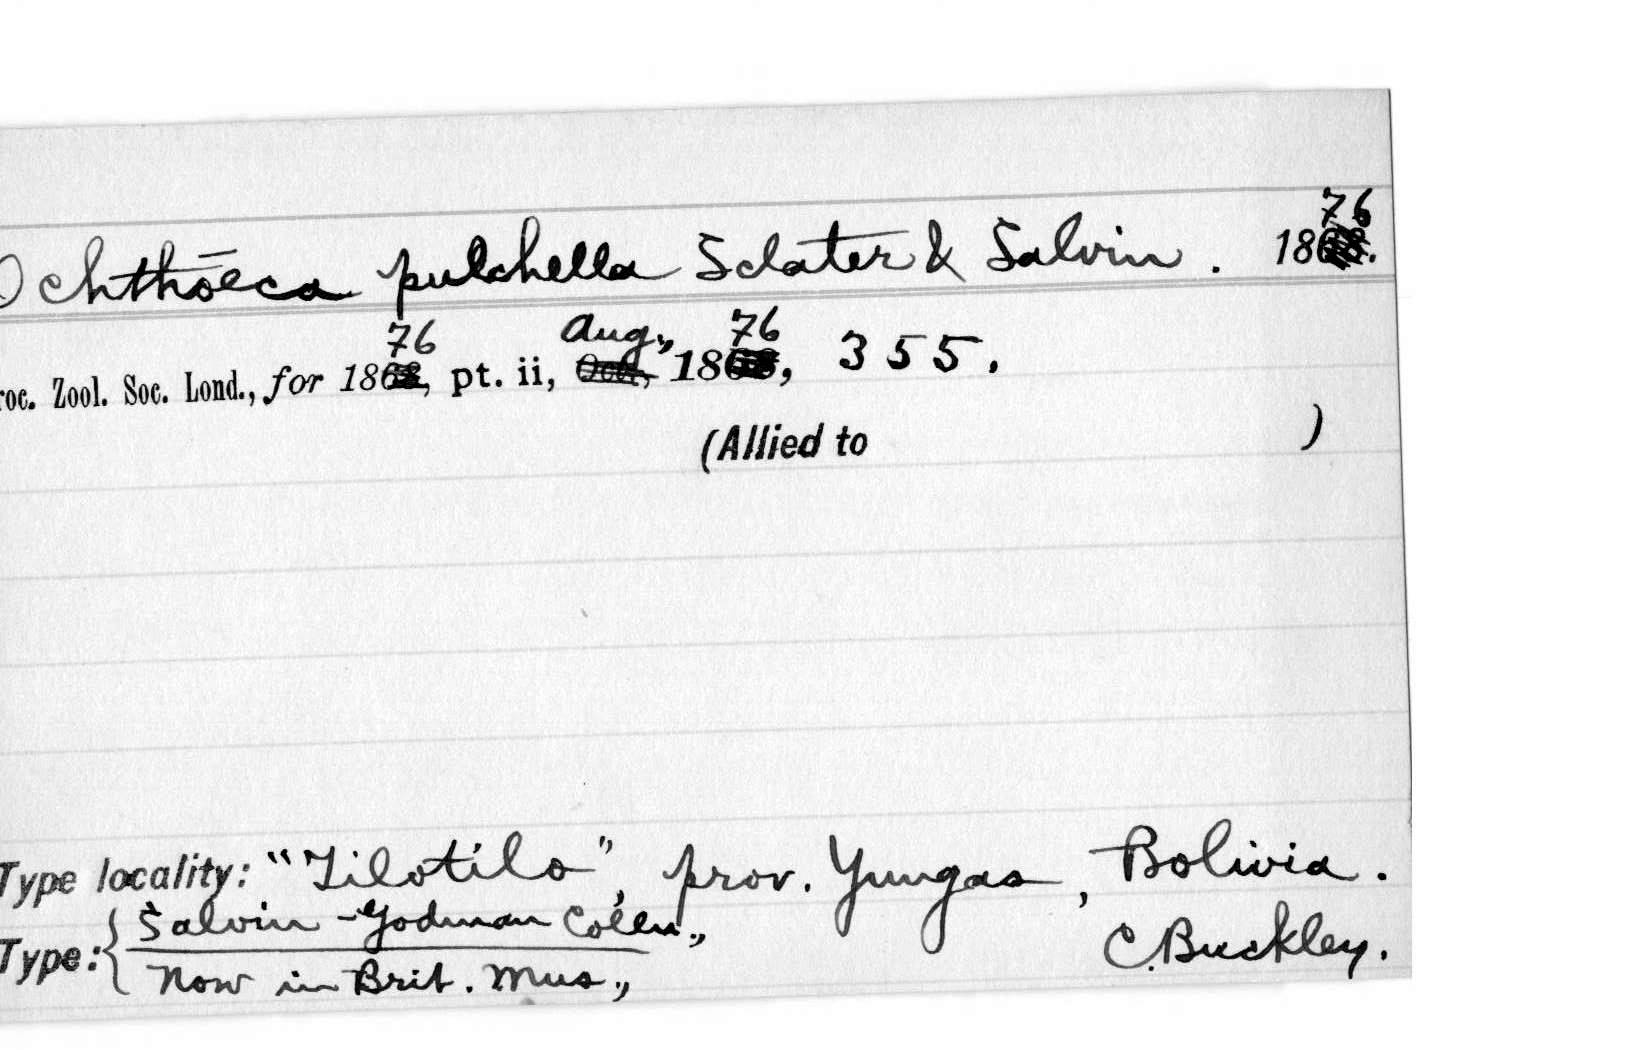 Ochthōeca pulchella Sclater & Salvin. 1876.
roc. Zool. Soc. Lond., for 1876, pt. ii, Aug., 1876, 355.
(Allied to )
Type locality: "Tilotilo", prov. Yungas, Bolivia.
Type: { Salvin-Godman Colln., C. Buckley.
Now in Brit. Mus.,